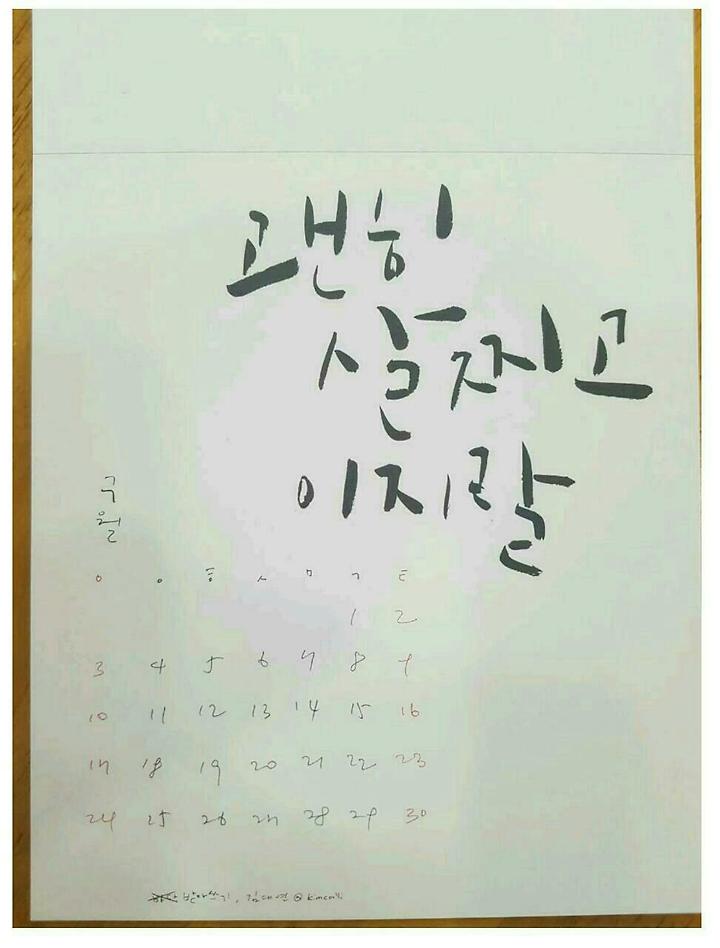 괜히
살찌고
이지랄
구
월
ㅇ ㅇ ㅎ ㅅ ㅁ ㄱ ㅌ
1 2
3 4 5 6 7 8 9
10 11 12 13 14 15 16
17 18 19 20 21 22 23
24 25 26 27 28 29 30
받아쓰기, 김대연@